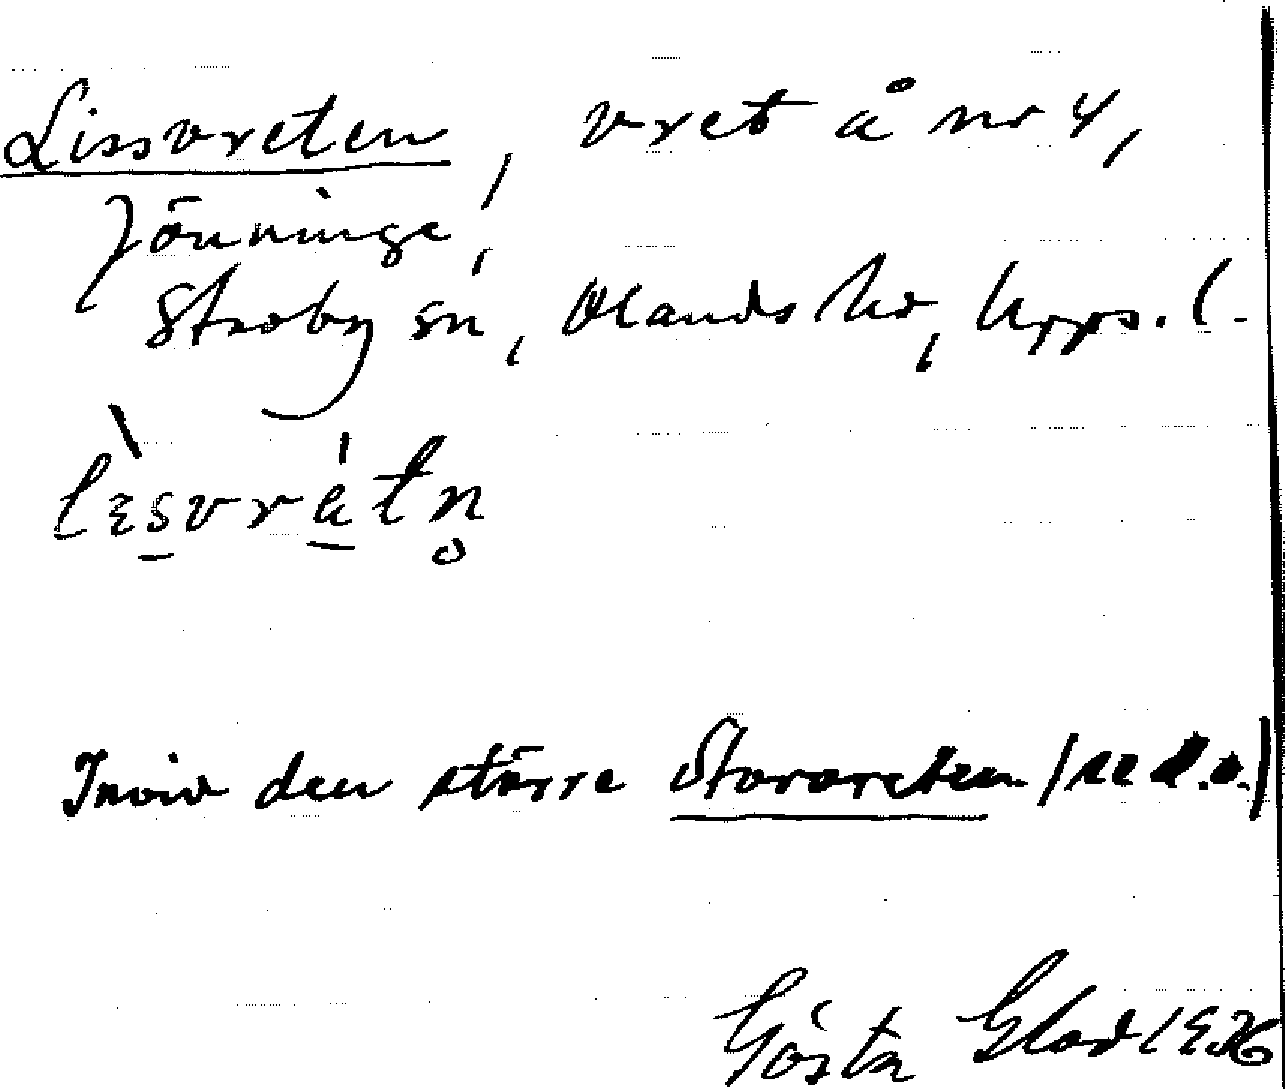 Lissvreten, vret å nr 4,
Jönninge,
Skeby sn, Olands hd, Upps. l.
lèsvrátn̥
Invid den större Storvreten (se d.o.)
Gösta Glad 1936